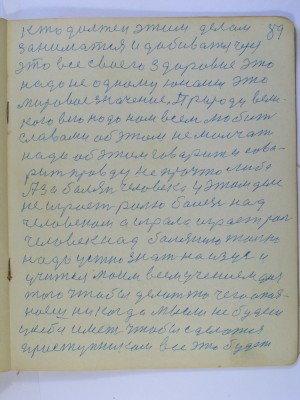 кто должен этим делом 89
заниматся и добиватчуу
это все своего здоровие это
надо не одному юному это
мировое значение, Природу вели-
кого its надо нам всем любит
славами об этом не молчат
надо об этом говорит и гово-
рит правду не про что либо
Аза болезн человека у этом деле
не играет ролю болезн над
человеком а играла играет рол
человек над болезнию только
надо устно знат наизус и
учится моем всем учением для
того чтобы делат то чего
ной никогда мысли не будем
имет чтобы сделатся
приступником все это будет